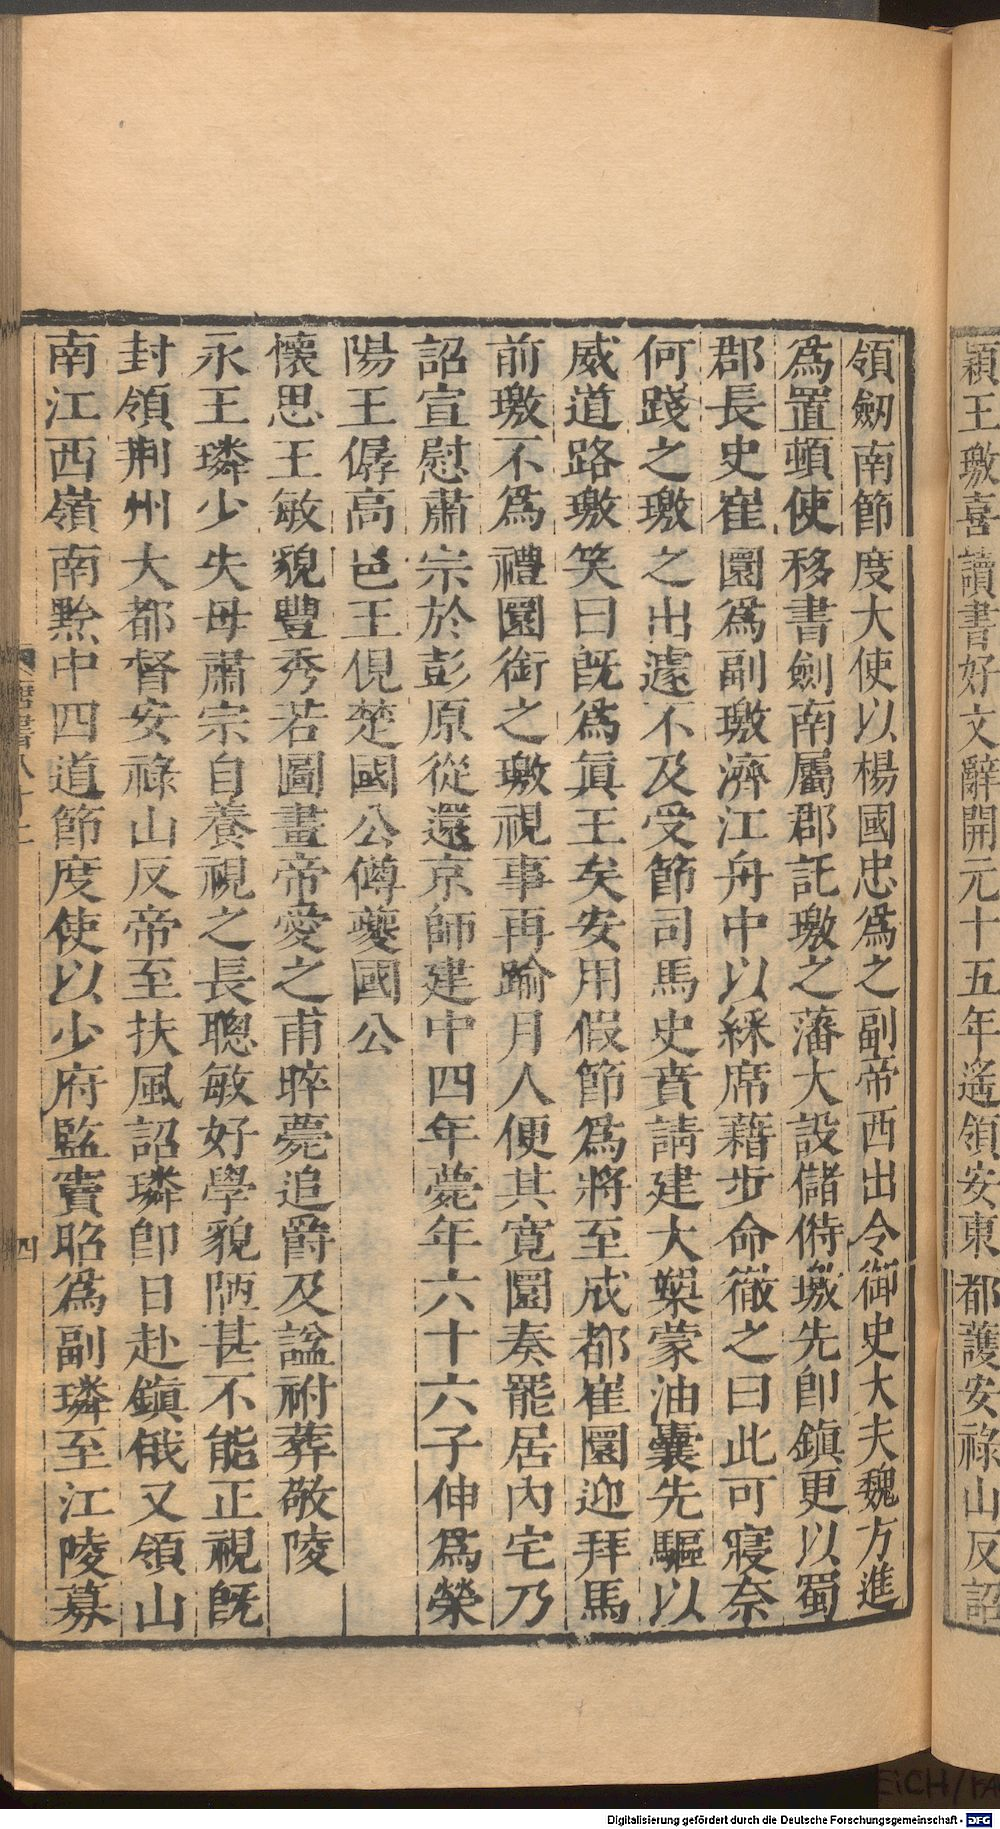 潁王璬喜讀書好文辭開元十五年遙領安東都護安祿山反詔
領劒南節度大使以楊國忠爲之副帝西出令御史大夫魏方進
爲置頓使移書劍南屬郡託璬之藩大設儲偫璬先卽鎭更以蜀
郡長史崔圓爲副璬濟江舟中以綵席藉步命徹之曰此可寢奈
何踐之璬之出遽不及受節司馬史賁請建大槊蒙油囊先驅以
威道路璬笑曰旣爲眞王矣安用假節爲將至成都崔圓迎拜馬
前璬不爲禮圓銜之璬視事再踰月人便其寬圓奏罷居內宅乃
詔宣慰肅宗於彭原從還京師建中四年薨年六十六子伸爲榮
陽王僝高邑王俔楚國公僔夔國公
懷思王敏貌豐秀若圖畫帝愛之甫晬薨追爵及諡祔葬敬陵
永王璘少失母肅宗自養視之長聰敏好學貌陋甚不能正視旣
封領荆州大都督安祿山反帝至扶風詔璘卽日赴鎭俄又領山
南江西嶺南黔中四道節度使以少府監竇昭爲副璘至江陵募
四
Digitalisierung gefördert durch die Deutsche Forschungsgemeinschaft - DFG